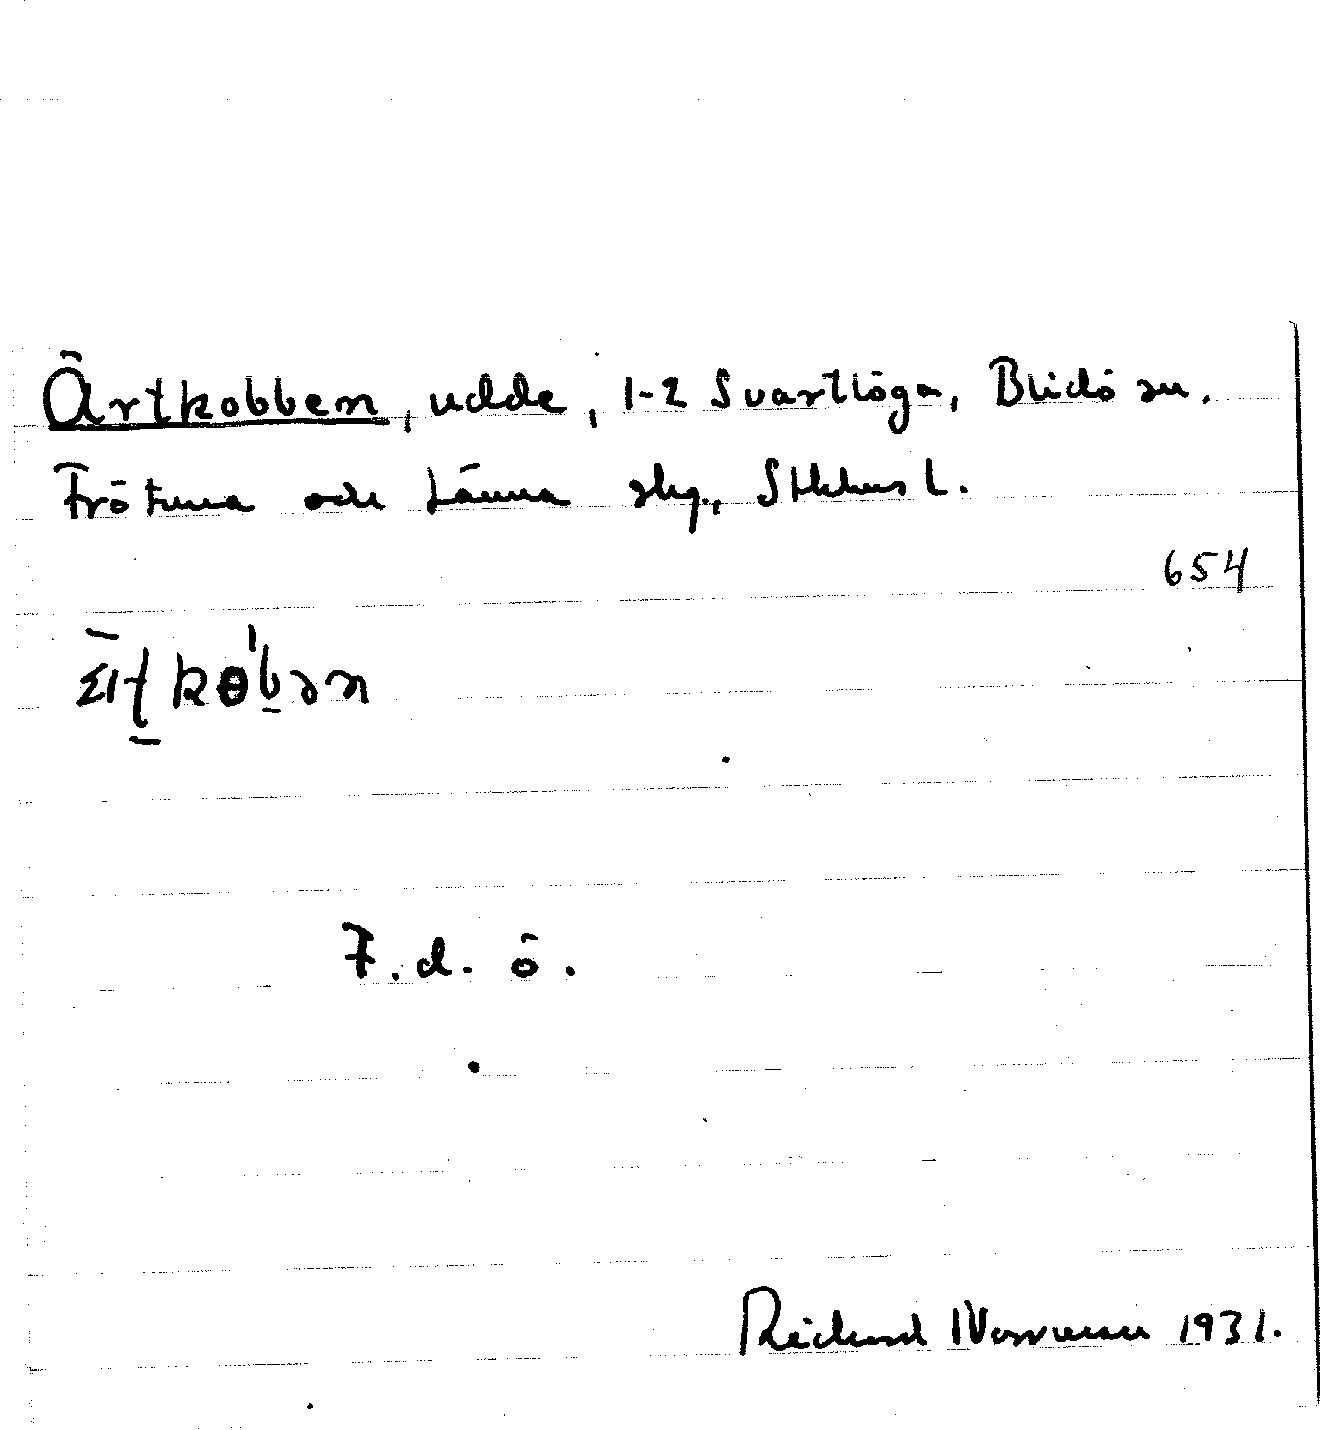 Ärtkobben, udde, 1-2 Svartlöga, Blidö sn.
Frötuna och Länna skg., Sthlms l.
654
F.d. ö.
Rickard Norrman 1931.